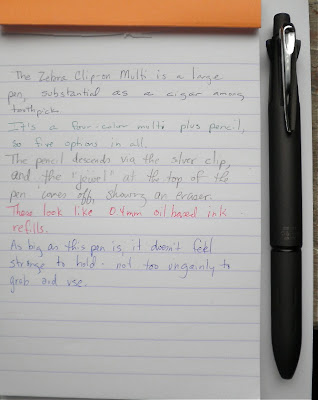 The Zebra Clip-on Multi is a large
pen, substantial as a cigar among
toothpicks
It's a four-color multi plus pencil,
so five options in all.
The pencil descends via the silver clip,
and the "jewel" at the top of the
pen comes off, showing an eraser.
These look like 0.4mm oil based ink
refills.
As big as this pen is, it doesn't feel
strange to hold - not too ungainly to
grab and use.